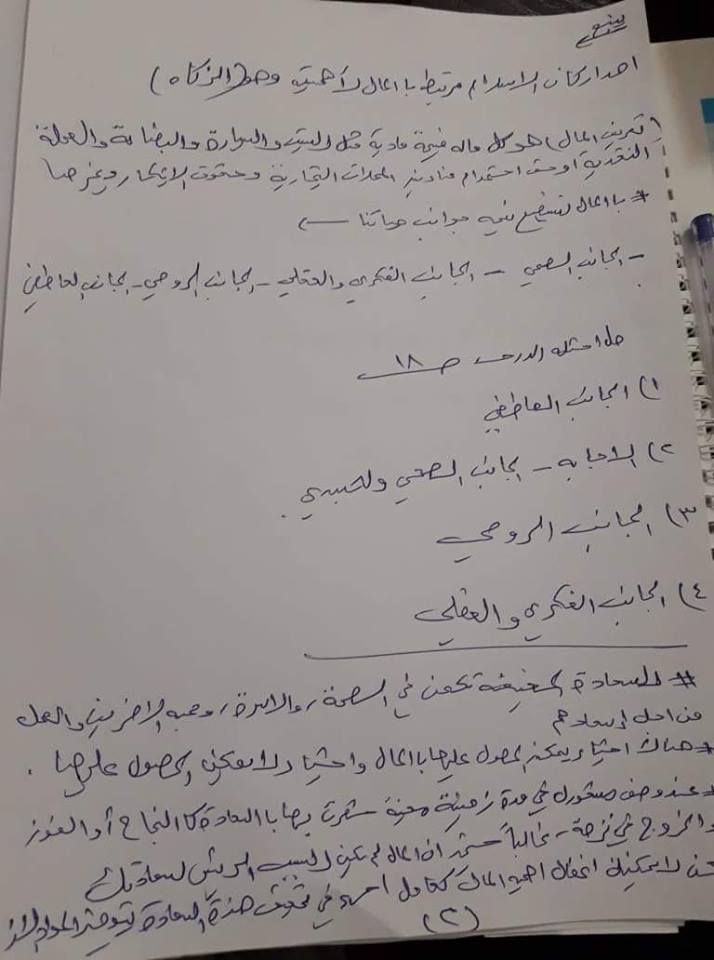 يتبع
احد اركان الاسلام مرتبط بالمال لأهميته وهو (الزكاه)
(تعريف المال) هو كل ماله قيمة مادية مثل البيت والسيارة والبضاعة والعملة
النقدية او حق استخدام عناوين المحلات التجارية وحقوق الابتكار وغيرها
# بالمال نستطيع تنميه جوانب حياتنا
- الجانب الصحي - الجانب الفكري والعقلي - الجانب الروحي - الجانب العاطفي
حل اسئله الدرس ص ١٨
١) الجانب العاطفي
٢) الاجابه - الجانب الصحي والجسدي .
٣) الجانب الروحي
٤) الجانب الفكري والعقلي
# السعادة الحقيقية تكمن في الصحة، والاسرة، وحبه الاخرين والعمل
من اجل إسعادهم
# هناك اشياء يمكن الحصول عليها بالمال واشياء لا يمكن الحصول عليها .
# عند وصف شعورك في مدة زمنية معينة شعرت بها بالسعادة كالنجاح أو الفوز
والخروج في نزهة - غالباً ستجد ان المال لم يكن السبب الرئيسي لسعادتك
لا يمكنك اغفال اهمية المال كعامل في تحقيق هذه السعادة
(٢)